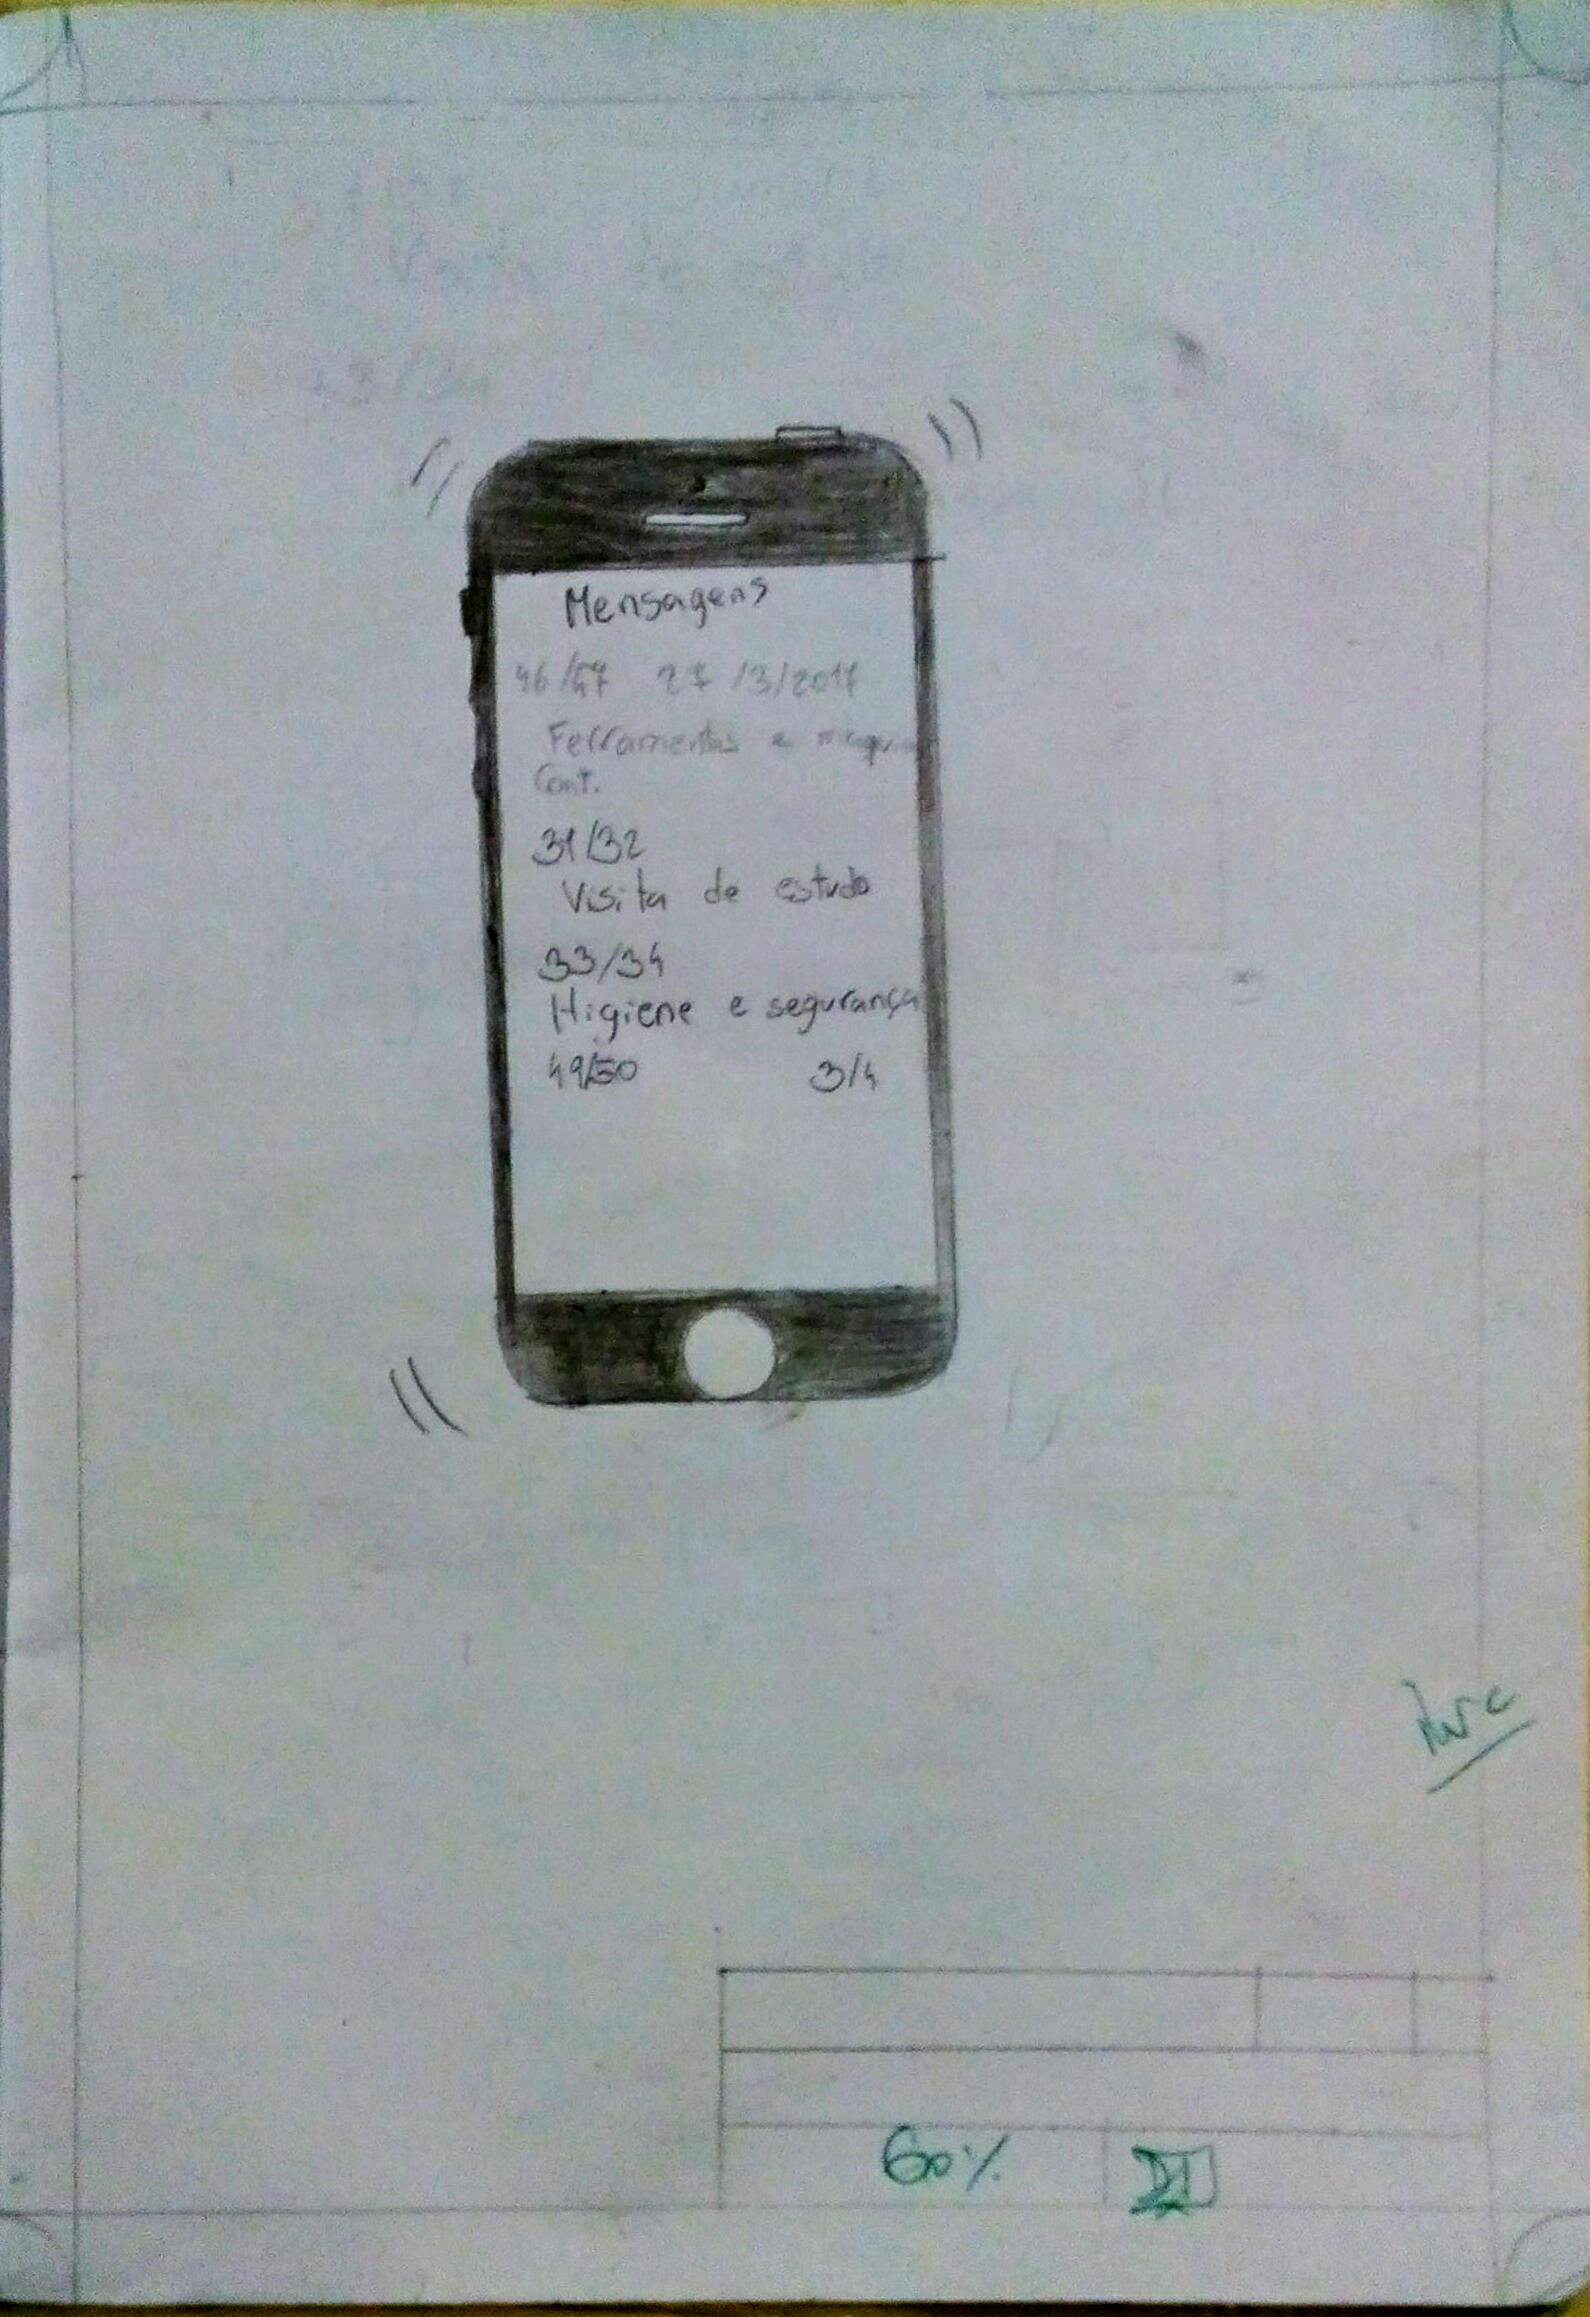 Mensagens
46/47 27/3/2017
Ferramentas e
Cont.
31/32
Visita de estudo
33/34
Higiene e segurança
49/50 3/4
60%